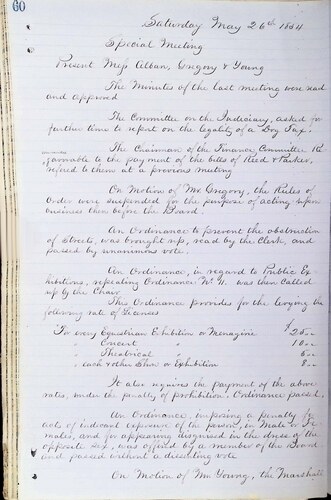 60
Saturday May 26th 1854
Special Meeting
Present Mess Alban, Gregory & Young
The Minutes of the last meeting were read
and approved
The Committee on the Judiciary, asked for
further time to report on the legality of a Dog Tax.
The Chairman of the Finance Committee
favorable to the payment of the bills of Reed & Parker,
refered to them at a previous meeting
On Motion of Mr Gregory, the Rules of
Order were suspended for the purpose of acting upon
business then before the Board.
An Ordinance to prevent the obstruction
of Streets, was brought up, read by the Clerk, and
passed by unanimous vote.
An Ordinance, in regard to Public Ex
hibitions, repealing Ordinance No 4, was then called
up by the Chair
This Ordinance provides for the levying the
following rate of Licenses
For every Equestrian Exhibition or Menagerie $25
" Concert " 10
" Theatrical " 5
" each other Show or Exhibition 8
It also requires the payment of the above
rates, under the penalty of prohibition. Ordinance passed.
An Ordinance, imposing a penalty for
acts of indecent exposure of the person, in Male or Fe
males, and for appearing disguised in the dress of the
opposite sex, was offered by a member of the Board
and passed without a dissenting vote
On Motion of Mr Young, the Marshall